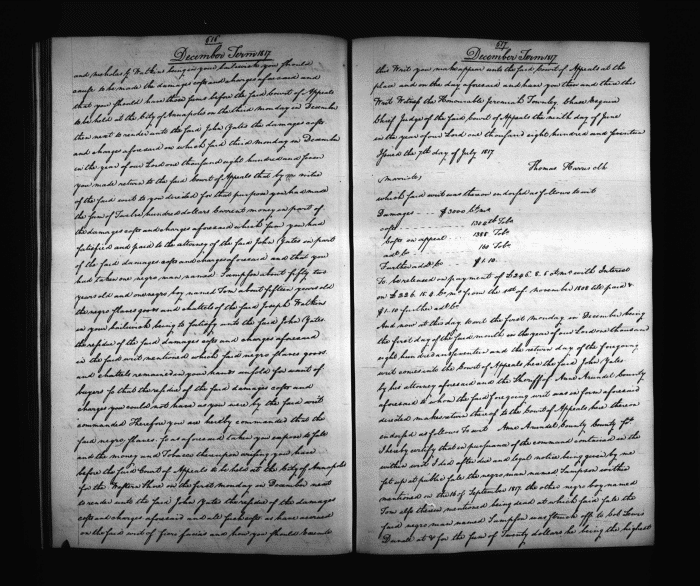 616
December Term 1817
and Nicholas J Watkins being in your bailiwick you should
cause to be made the damages costs and charges aforesaid and
that you should have those sums before the said Court of Appeals
to be held at the City of Annapolis on the third monday in December
then next to render unto the said John Yates the damages costs
and charges aforesaid on which said third monday in December
in the year of our Lord one thousand eight hundred and
you made return to the said Court of Appeals that by virtue
of the said writ to you directed for that purpose you had made
the sum of Twelve hundred dollars Current money in part of
the damages costs and charges aforesaid which sum you had
satisfied and paid to the attorney of the said John Yates in part
of the said damages costs and charges aforesaid and that you
had taken one negro man named Sampson about fifty two
years old and one negro boy named Tom about fifteen years old
the negro slaves goods and chattels of the said Joseph Watkins
in your bailiwick being to satisfy unto the said John Yates
the residue of the said damages costs and charges aforesaid
in the said writ mentioned which said negro slaves goods
and chattels remained in your hands unsold for want of
buyers so that the residue of the said damages costs and
charges you could not have as you were by the said writ
commanded Therefore you are hereby commanded that the
said negro slaves so as aforesaid taken you expose to sale
and the money and Tobacco thereupon arising you have
before the said Court of Appeals to be held at the City of Annapolis
for the Western Shore on the first monday in December next
to render unto the said John Yates the residue of the damages
costs and charges aforesaid and all such costs as have accrued
on the said writ of fieri facias and how you should execute
617
December Term 1817
this Writ you make appear unto the said Court of Appeals at the
place and on the day aforesaid and have you then and there this
Writ Witness the Honourable Jeremiah Townley Chase Esquire
Chief Judge of the said Court of Appeals the ninth day of June
in the year of our Lord one thousand eight hundred and seventeen
Issued the 7th day of July 1817
Thomas Harris clk
which said writ was thereon endorsed as follows to wit
Damages $3000 Ct. mo
costs 1304 lb Tobo
Costs on appeal 1388 Tobo
add. Do 160 Tobo
Further add. Do $1.10
To be released on payment of £346.8.6 Ct. mo with Interest
on £336.15.0 Ct. mo from the 1st of November 1808 till paid &
$1.10 further add. Do
And now at this day to wit the first Monday in December being
the first day of the said month in the year of our Lord one thousand
eight hundred and seventeen and the return day of the foregoing
writ comes into the Court of Appeals here the said John Yates
by his attorney aforesaid and the Sheriff of Ann Arundel County
aforesaid to whom the said foregoing writ was in form aforesaid
directed makes return thereof to the Court of Appeals here thereon
endorsed as follows To wit Ann Arundel County Sct
I hereby certify that in pursuance of the command contained in the
within writ I did after due and legal notice being given by me
set up at public sale the negro man named Sampson within
mentioned on the 16 of September 1817 the other negro boy named
Tom also therein mentioned being dead at which said sale the
said negro man named Sampson was struck off to Col Louis
Duvall at & for the sum of Twenty dollars he being the highest